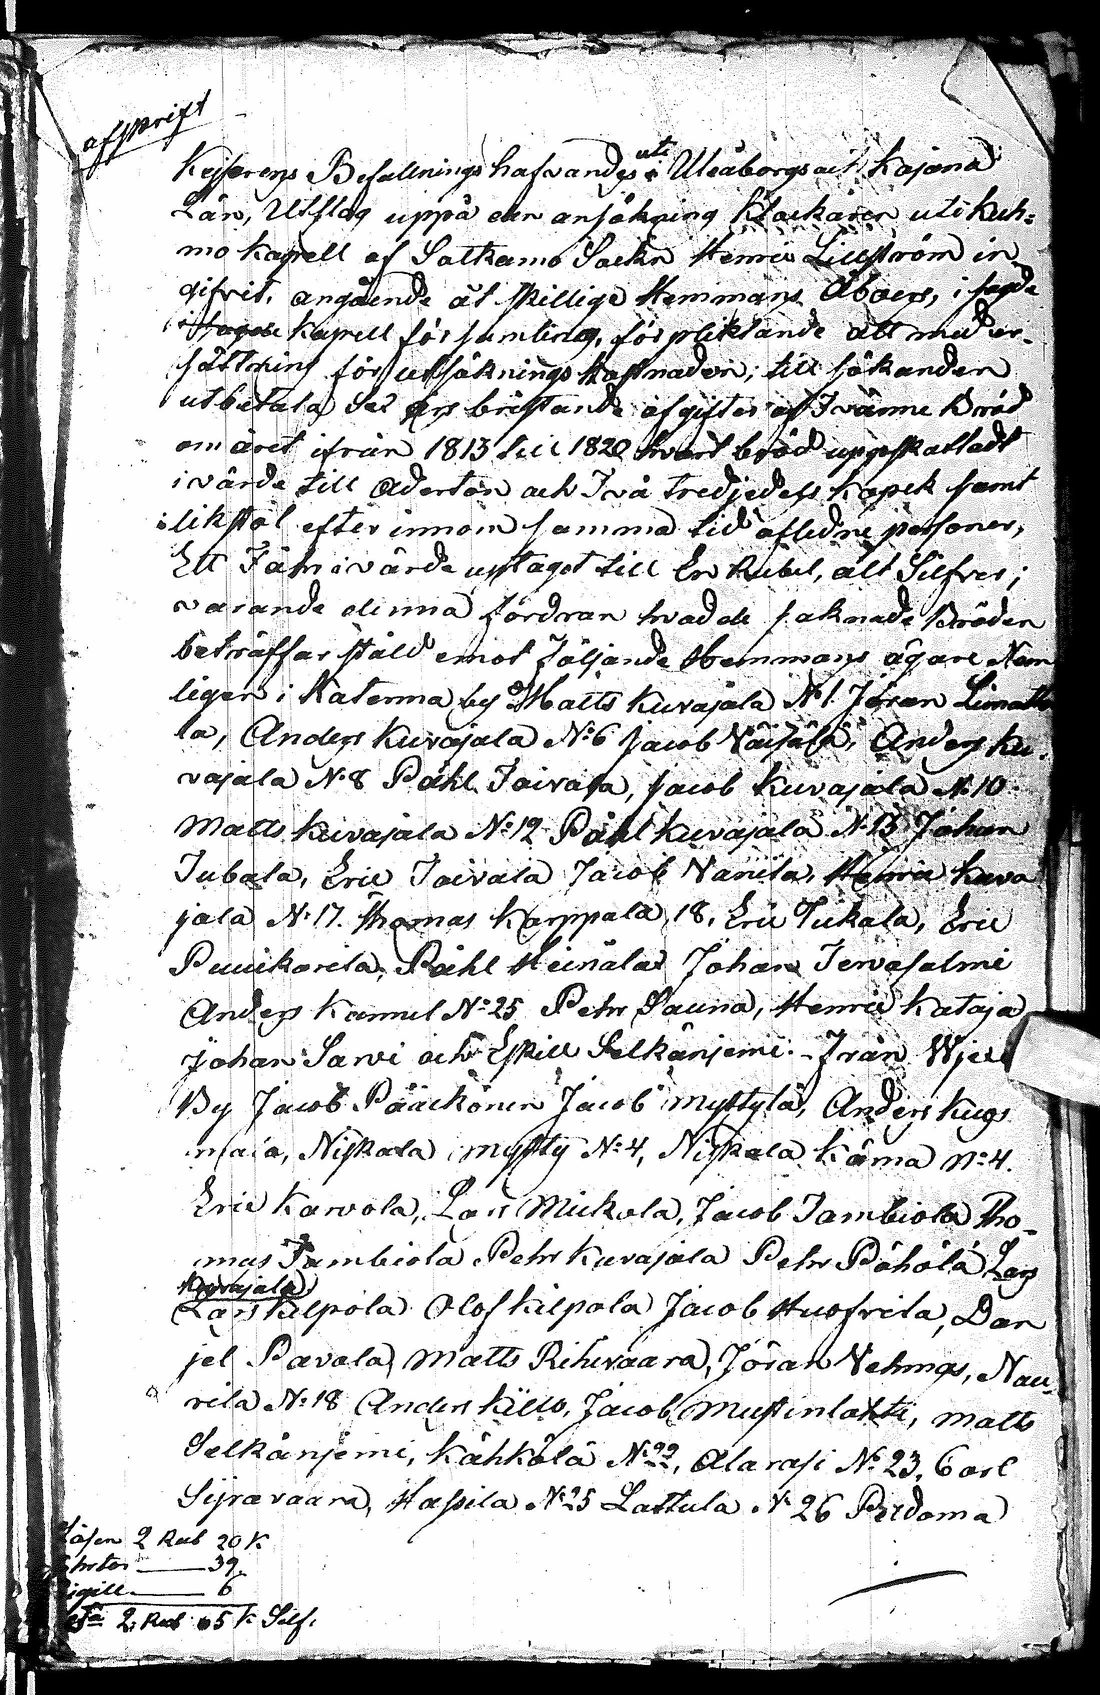 afskrift
Kejserens Befallningshafvandes uti Uleåborgs och Kajana
Län, Utslag uppå en ansökning Klockaren uti Kuh-
mo kapell af Sotkamo Sockn Henric Lillström in
gifvit, angående åtskillige Hemmans Åboers, i sagde
kapell församling, förpliktande att med er-
sättning för utsöknings kostnaden, till sökanden
utbetala des års bristande afgifter af Tvänne Bröd
om året ifrån 1813 till 1820 hvart bröd uppskattadt
i värde till Aderton och Två tredjedels kopek samt
likstol efter innom samma tid aflidne personer,
Ett i värde uptaget till En Rubel, alt Silfver;
varande denna fordran hvad de saknade Bröden
beträffar stäld emot följande Hemmans ägare Nem
ligen i Katerma by Matts Kuvajala N:1. Jöran Limatt
la, Anders Kuvajala N:6 Jacob Väisälä, Anders Ku-
vajala N:8 Påhl Taivala, Jacob Kuvajala N:10
Matts Kuvajala N:12 Påhl Kuvajala N:13 Johan
Tubala, Eric Taivala Jacob Vanila, Henric Kuva
jala N:17. Thomas Karppala 18, Eric Tickala, Eric
Puuckarila, Påhl Heinälä Johan Terwasalmi
Anders Kamul N:25 Petr Sauna, Henric Kataja
Johan Sarvi och Eskill Selkänjemi. Från Wjeki
By Jacob Pääckönen Jacob Myttylä, Anders Kugs
maia, Niskala Mystty N:4, Niskala Käma N:4.
Eric Karvola, Lars Mickola, Jacob Tambiola Tho-
mas Tambiola Petr Kuvajala Petr Pöhölä Lars
Kuvajala
Lars Kilpola Olof Kilpola Jacob Huofvila, Dan
jel Pavola Matts Rihivaara, Jöran Vehmas, Nau-
rila N:18 Anders Killo, Jacob Mustinlahti, Matts
Selkänjemi, Kähkölä N:22, Alarasi N:23, Carl
Sipavaara, Hassila N:25 Lattula N:26 Pudoma
Lösen 2 Rub 20 K
39
Sigill 6
2 Rub 65 K Silf.